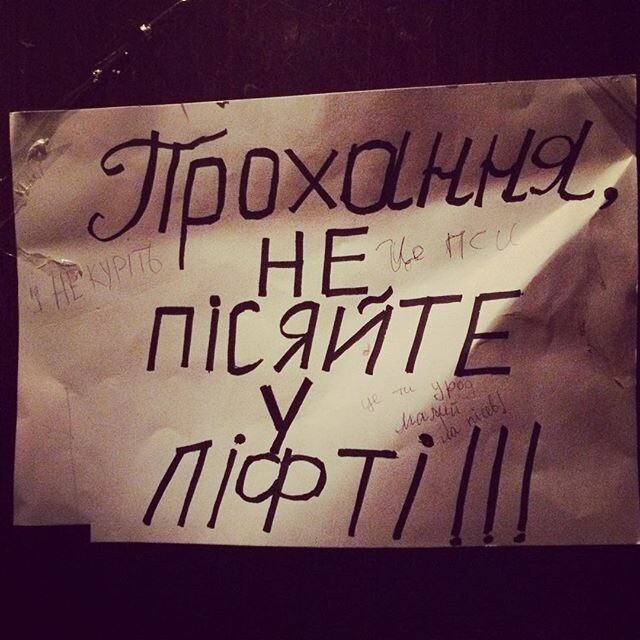 Прохання,
НЕ
Це пси
І НЕ КУРІТЬ
пісяйте
У
це ти урод
малий
ліфті!!!